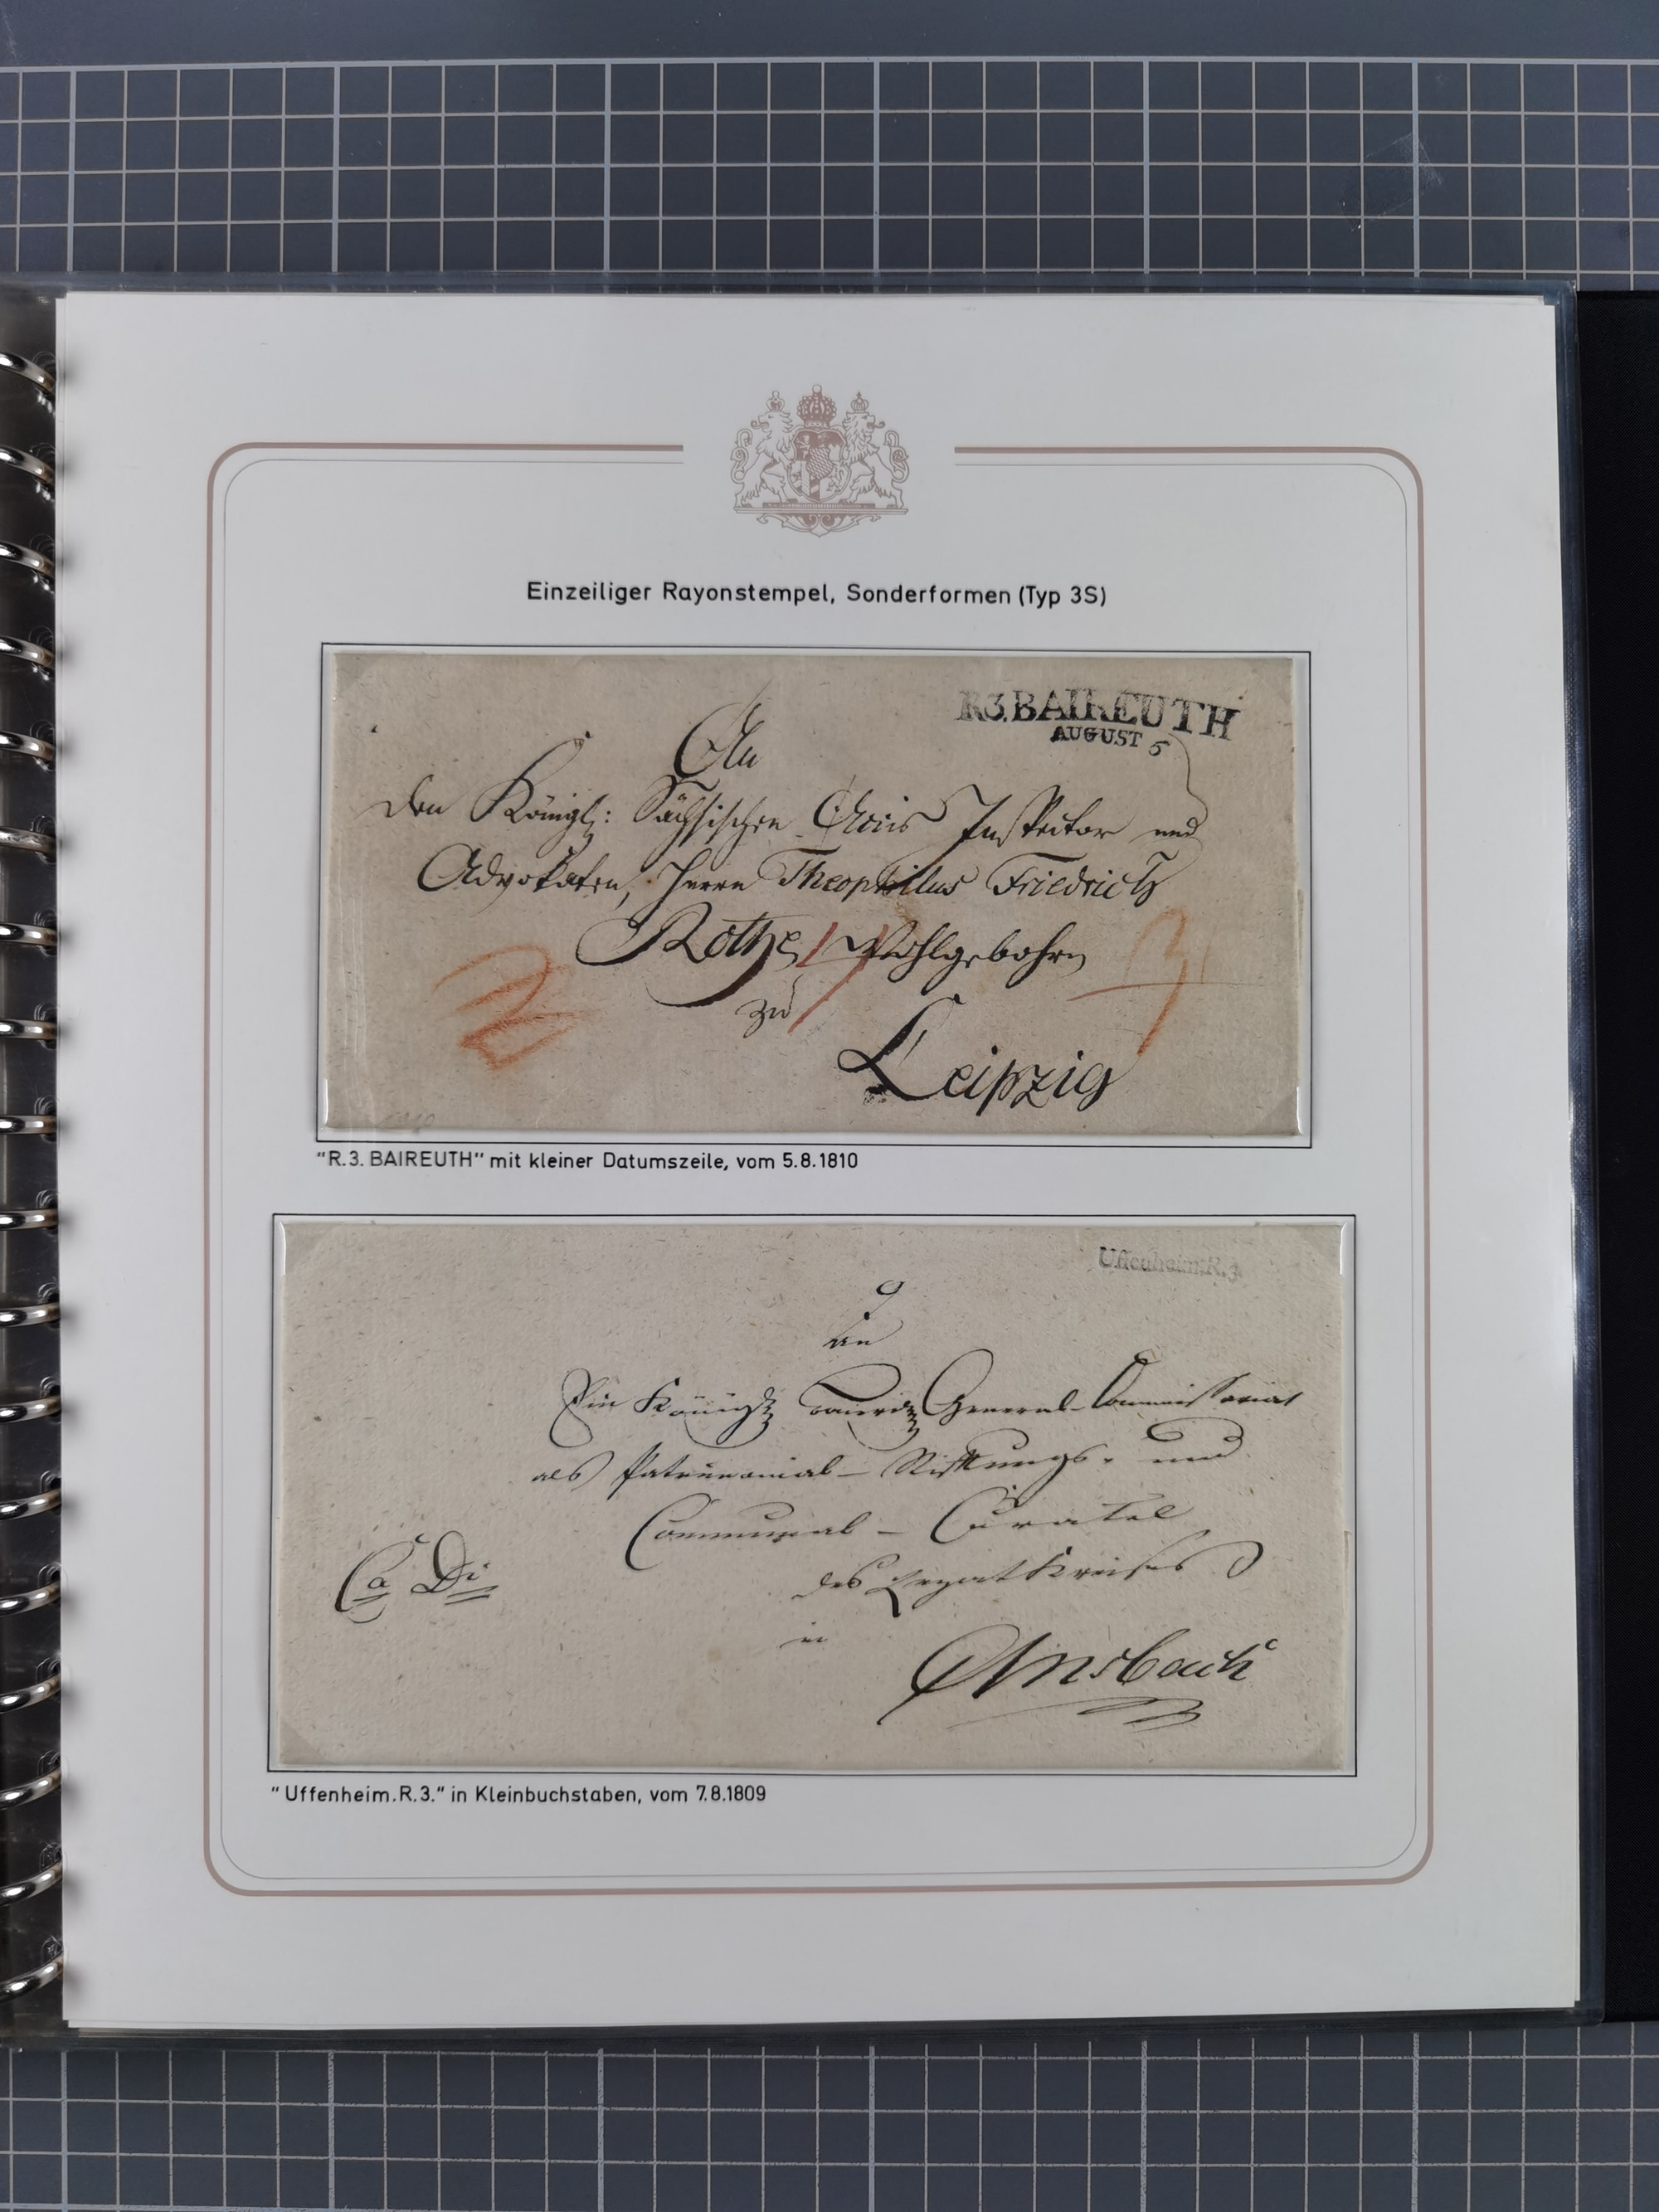 Einzeiliger Rayonstempel, Sonderformen (Typ 3S)
R.3.BAIREUTH
AUGUST 5
An
den Königl: Sächsischen Accis Inspector und
Advokaten, Herrn Theophilus Friedrich
Rothe, Wohlgebohrn
zu
Leipzig
"R.3. BAIREUTH" mit kleiner Datumszeile, vom 5.8.1810
Uffenheim.R.3.
An
Ein General-Commissariat
als Stiftungs- und
Communal - Curatel
des Rezat Kreises
in
Ansbach
"Uffenheim.R.3." in Kleinbuchstaben, vom 7.8.1809